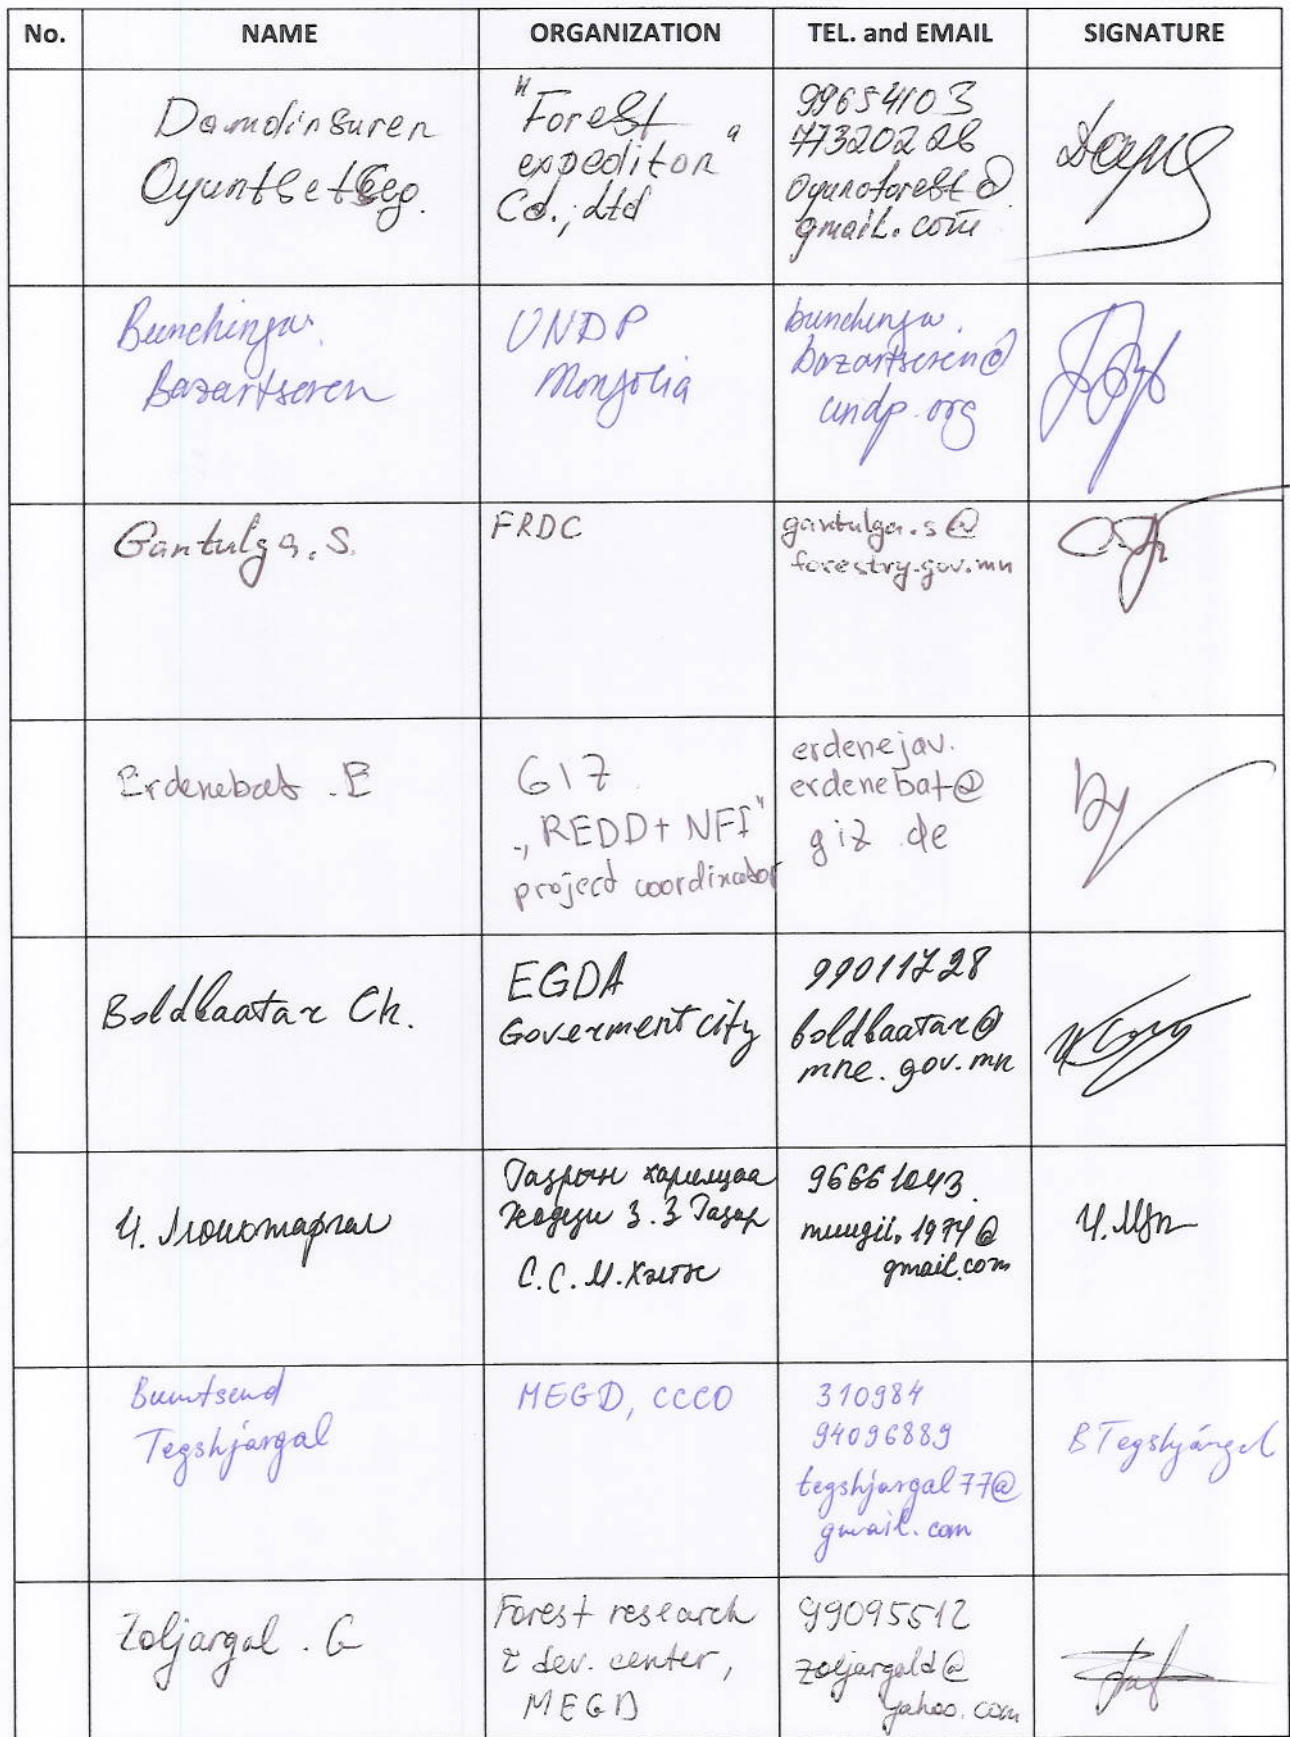 No. NAME ORGANIZATION TEL. and EMAIL SIGNATURE
Damdinsuren
Oyuntsetseg.
"Forest
expeditor"
Co.; Ltd
99654103
77320226
oyunoforest@
gmail.com
Bunchingiv
Bazartseren
UNDP
Mongolia
bunchingiv.
bazartseren@
undp.org
Gantulga. S.
FRDC
gantulga.s@
forestry.gov.mn
Erdenebat . E
GIZ
„REDD+ NFI"
project coordinator
erdenejav.
erdenebat@
giz.de
Boldbaatar Ch.
EGDA
Goverment city
99011728
boldbaatar@
mne.gov.mn
Ч. Мөнхжаргал
Газрын харилцаа
З.З Газар
С.С.М.Хэлтэс
96661043.
muugii.1974@
gmail.com
Ч.Мөн
Bumtsend
Tegshjargal
MEGD, CCCO
310984
94096889
tegshjargal77@
gmail.com
B Tegshjargal
Zoljargal . G
Forest research
& dev. center,
MEGD
99095512
zoljargald@
yahoo.com